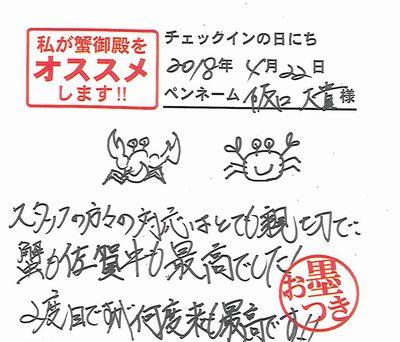 私が蟹御殿を
オススメ
します!!
チェックインの日にち
2018年 4月 22日
ペンネーム 様
スタッフの方々の対応はとても親切で…
蟹も佐賀牛も最高でした!
2度目ですが何度来ても最高です!!
お墨つき